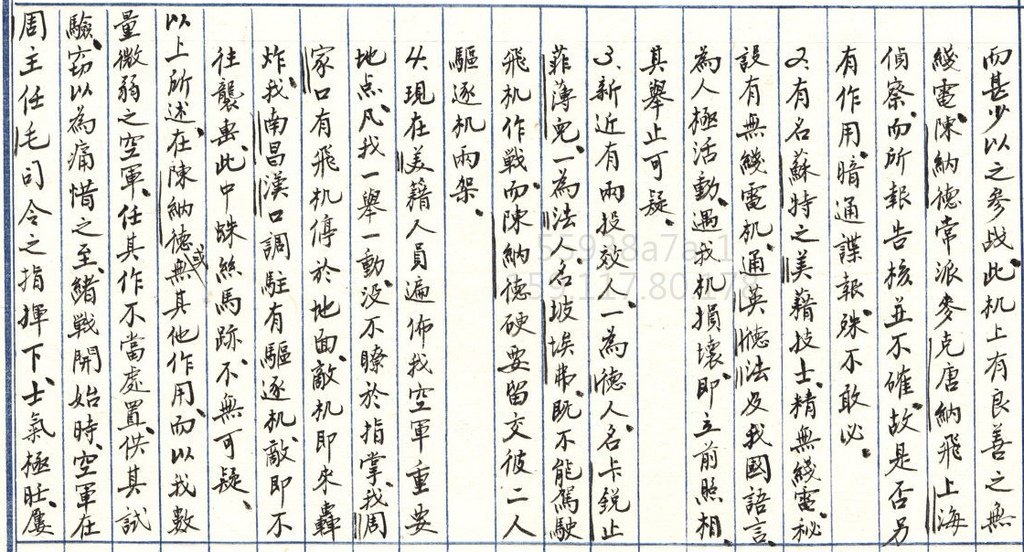 而甚少以之參战、此机上有良善之無
綫電、陳納德常派麥克唐納飛上海
偵察、而所報告核並不確、故是否另
有作用、暗通諜報、殊不敢必。
2、有名蘇特之美籍技士、精無綫電、秘
設有無綫電机、通英德法及我國語言、
為人極活動、遇我机損壞、即立前照相、
其舉止可疑、
3、新近有兩投效人、一為德人、名卡銳止
菲薄兜、一為法人、名坡埃弗、既不能駕駛
飛机作戰、而陳納德硬要留交彼二人
驅逐机兩架、
4、現在美籍人員遍佈我空軍重要
地点、凡我一舉一動、没不瞭於指掌、我周
家口有飛机停於地面、敵机即來轟
炸、我南昌漢口調駐有驅逐机、敵即不
往襲击、此中蛛絲馬跡、不無可疑、
以上所述、在陳納德或無其他作用、而以我數
量微弱之空軍、任其作不當處置、供其試
驗、窃以為痛惜之至、緒戰開始時、空軍在
周主任毛司令之指揮下、士氣極旺、屢